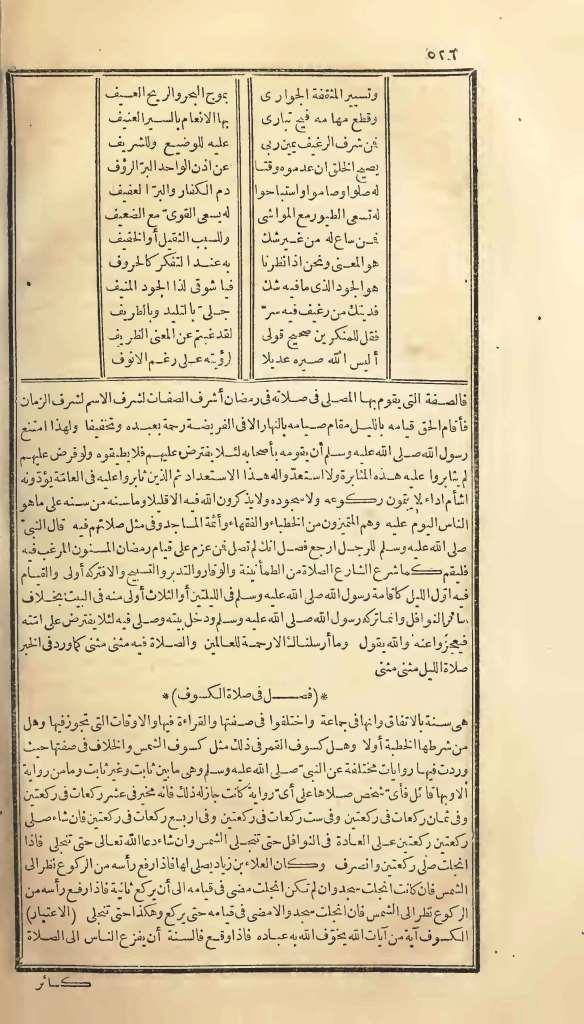 ٥٢٦
وتسيير المثقفة الجوارى بموج البحر والريح العسيف
وقطع مهامه فيح تبارى بها الانعام بالسير العنيف
فمن شرف الرغيف يمين ربى عليه للوضيع وللشريف
يصيح الخلق ان عدموه وقتا عن اذن الواحد البرّ الرؤف
له صلوا وصاموا واستباحوا دم الكفار والبرّ العفيف
له تسعى الطيور مع المواشى له يسعى القوىّ مع الضعيف
فمن ساع له من غير شك وللسبب الثقيل أو الخفيف
هو المعنى ونحن اذا نظرنا به عند التفكر كالحروف
هو الجود الذى ما فيه شك فيا شوقى لذا الجود المنيف
فديتك من رغيف فيه سرّ جلىّ بالتليد وبالطريف
فقل للمنكرين صحيح قولى لقد غبتم عن المعنى الظريف
أليس الله صيره عديلا لرؤيته على رغم الانوف
فالصفة التى يقوم بها المصلى فى صلاته فى رمضان أشرف الصفات لشرف الاسم لشرف الزمان
فأقام الحق قيامه بالليل مقام صيامه بالنهار الافى الفريضة رحمة بعبده وتخفيفا ولهذا امتنع
رسول الله صلى الله عليه وسلم أن يقومه بأصحابه لئلا يفترض عليهم فلا يطيقوه ولو فرض عليهم
لم يثابروا عليه هذه المثابرة ولا استعدّوا له هذا الاستعداد ثم الذين ثابروا عليه فى العامّة يؤدّونه
اشأم اداء لا يتمون ركوعه ولا سجوده ولا يذكرون الله فيه الا قليلا وما سنه من سنه على ما هو
الناس اليوم عليه وهم المتميزون من الخطباء والفقهاء وأئمة المساجد وفى مثل صلاتهم فيه قال النبىّ
صلى الله عليه وسلم للرجل ارجع فصل انك لم تصل فمن عزم على قيام رمضان المسنون المرغب فيه
فليقم كما شرع الشارع الصلاة من الطمأنينة والوقار والتدبر والتسبيح والا فتركه أولى والقيام
فيه اوّل الليل كاقامة رسول الله صلى الله عليه وسلم فى الليلتين أو الثلاث أولى منه فى البيت بخلاف
سائر النوافل وانما تركه رسول الله صلى الله عليه وسلم ودخل بيته وصلى فيه لئلا يفترض على امّته
فيعجزوا عنه والله يقول وما أرسلناك الا رحمة للعالمين والصلاة فيه مثنى مثنى كما ورد فى الخبر
صلاة الليل مثنى مثنى
*(فصل فى صلاة الكسوف)*
هى سنة بالاتفاق وانها فى جماعة واختلفوا فى صفتها والقراءة فيها والاوقات التى تجوز فيها وهل
من شرطها الخطبة أولا وهل كسوف القمر فى ذلك مثل كسوف الشمس والخلاف فى صفتها حيث
وردت فيها روايات مختلفة عن النبىّ صلى الله عليه وسلم وهى ما بين ثابت وغير ثابت وما من رواية
الا وبها قائل فأىّ شخص صلاها على أىّ رواية كانت جاز له ذلك فانه مخير فى عشر ركعات فى ركعتين
وفى ثمان ركعات فى ركعتين وفى ست ركعات فى ركعتين وفى أربع ركعات فى ركعتين فان شاء صلى
ركعتين ركعتين على العادة فى النوافل حتى تنجلى الشمس وان شاء دعا الله تعالى حتى تنجلى فاذا
انجلت صلى ركعتين وانصرف وكان العلاء بن زياد يصلى لها فاذا رفع رأسه من الركوع نظر الى
الشمس فان كانت انجلت سجد وان لم تكن انجلت مضى فى قيامه الى أن يركع ثانية فاذا رفع رأسه من
الركوع نظر الى الشمس فان انجلت سجد والا مضى فى قيامه حتى يركع وهكذا حتى تنجلى (الاعتبار)
الكسوف آية من آيات الله يخوّف الله به عباده فاذا وقع فالسنة أن يفزع الناس الى الصلاة
كسائر